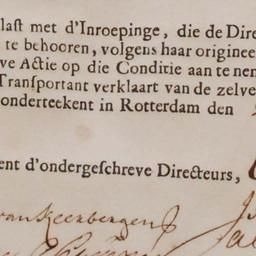 laſt met d'Inroepinge, die de Dire
te behooren, volgens haar originee
ve Actie op die Conditie aan te nen
Transportant verklaart van de zelve
onderteekent in Rotterdam den
ent d'ondergeſchreve Directeurs,
van Keerbergen